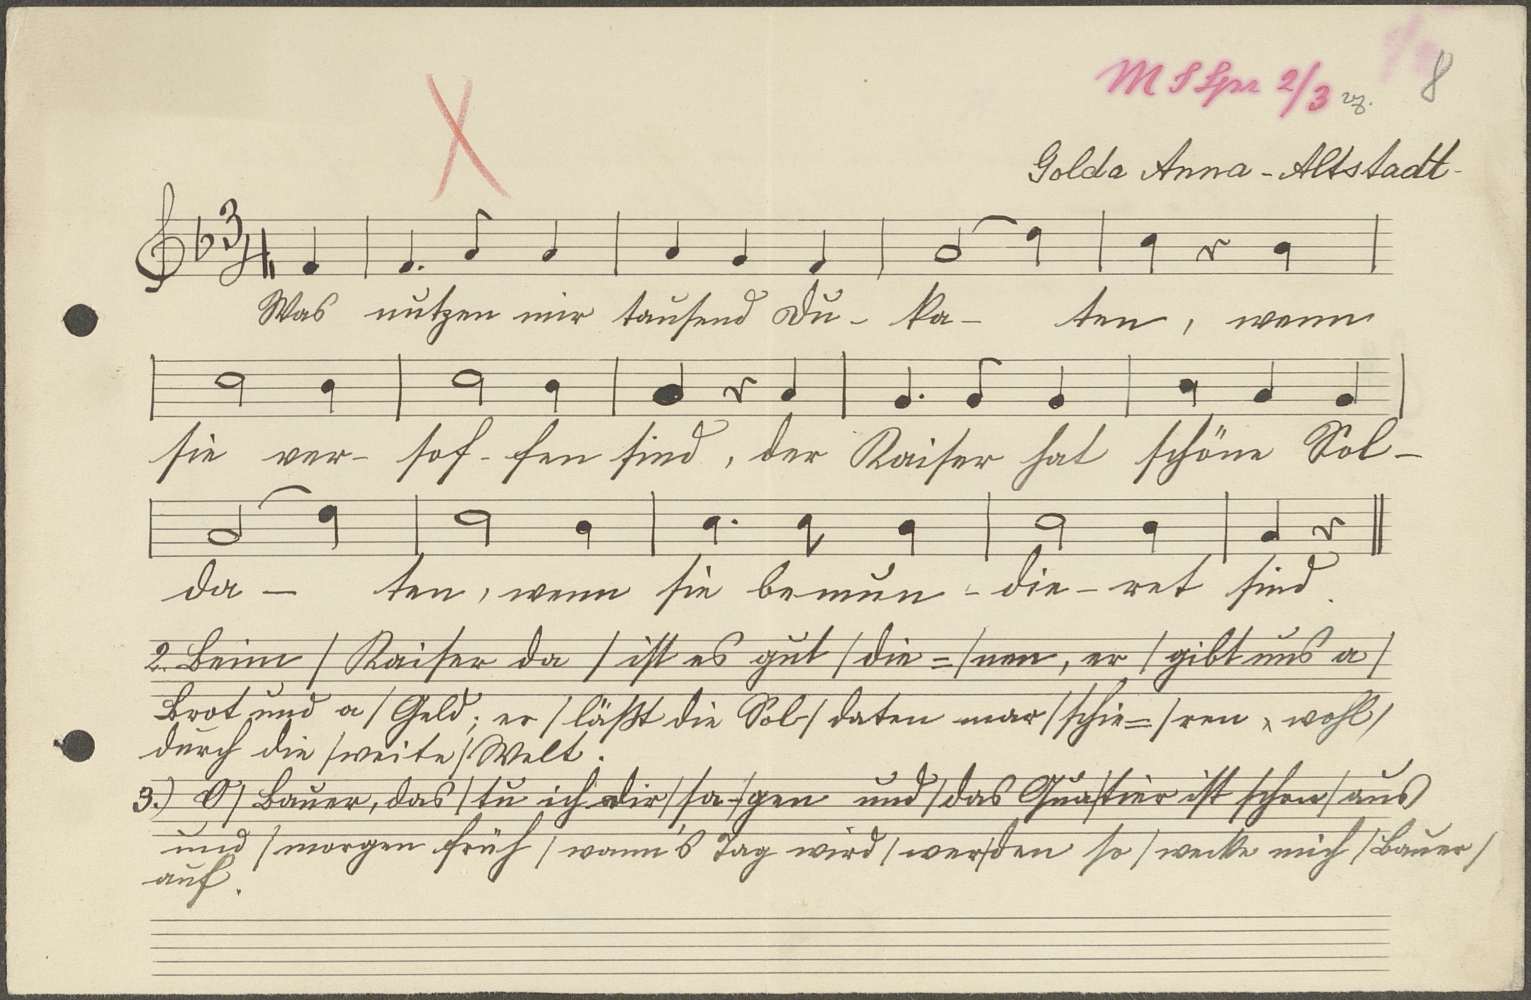 M S Spr 2/3 8
Golda Anna - Altstadt -
3/4
Was nutzen mir tausend Du - ka - ten, wenn
sie ver - sof - fen sind, der Kaiser hat schöne Sol -
da - ten, wenn sie bemun - die - ret sind.
2. Beim / Kaiser da / ist es gut / die = / nen, er / gibt uns a /
Brot und a / Geld; er / läßt die Sol / daten mar / schie = / ren, wohl /
durch die / weite / Welt.
3.) O / Bauer, das / tu ich dir / sa - / gen und / das Qua / tier ist schon / aus
und / morgen früh / wann's Tag wird / wer / den so / wecke mich / Bauer /
auf.